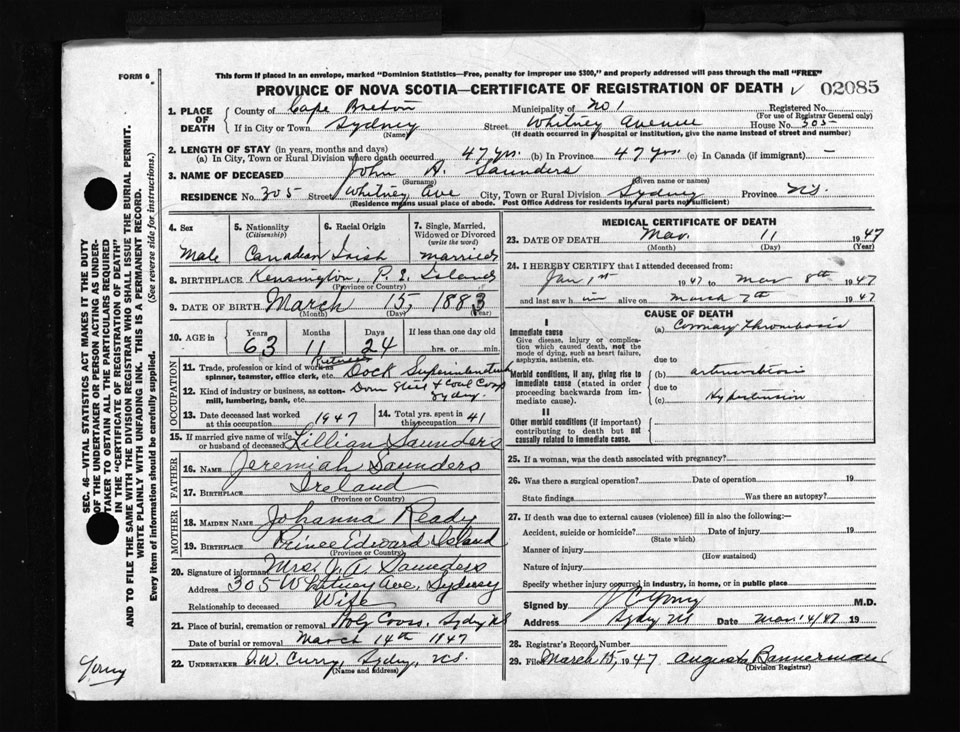 FORM 6
This form if placed in an envelope, marked "Dominion Statistics—Free, penalty for improper use $300," and properly addressed will pass through the mail "FREE"
PROVINCE OF NOVA SCOTIA—CERTIFICATE OF REGISTRATION OF DEATH 02085
1. PLACE OF DEATH { County of Cape Breton Municipality of No 1 Registered No. (For use of Registrar General only)
If in City or Town Sydney (Name) Street Whitney Avenue House No. 305
(If death occurred in hospital or institution, give the name instead of street and number)
2. LENGTH OF STAY (in years, months and days)
(a) In City, Town or Rural Division where death occurred 47 yrs. (b) In Province 47 yrs. (c) In Canada (if immigrant) —
3. NAME OF DECEASED John A. Saunders
(Surname) (Given name or names)
RESIDENCE No. 305 Street Whitney Ave City, Town or Rural Division Sydney Province N.S.
(Residence means usual place of abode. Post Office Address for residents in rural parts not sufficient)
4. Sex Male
5. Nationality (Citizenship) Canadian
6. Racial Origin Irish
7. Single, Married, Widowed or Divorced (write the word) married
8. BIRTHPLACE Kensington, P. E. Island
(Province or Country)
9. DATE OF BIRTH March 15, 1883
(Month) (Day) (Year)
10. AGE in { Years 63 Months 11 Days 24 If less than one day old hrs. or min.
OCCUPATION
11. Trade, profession or kind of work as spinner, teamster, office clerk, etc. Retired Dock Superintendent
12. Kind of industry or business, as cotton-mill, lumbering, bank, etc. Dom Steel & Coal Corp Sydney.
13. Date deceased last worked at this occupation 1947
14. Total yrs. spent in this occupation 41
15. If married give name of wife or husband of deceased Lillian Saunders
FATHER
16. NAME Jeremiah Saunders
17. BIRTHPLACE Ireland
(Province or Country)
MOTHER
18. MAIDEN NAME Johanna Ready
19. BIRTHPLACE Prince Edward Island
(Province or Country)
20. Signature of informant Mrs. J. A. Saunders
Address 305 Whitney Ave, Sydney
Relationship to deceased Wife
21. Place of burial, cremation or removal Holy Cross. Sydney NS
Date of burial or removal March 14th 1947
22. UNDERTAKER Curry, Sydney, N.S.
(Name and Address)
MEDICAL CERTIFICATE OF DEATH
23. DATE OF DEATH Mar. 11 1947
(Month) (Day) (Year)
24. I HEREBY CERTIFY that I attended deceased from:
Jan 1st 1947 to Mar 8th 1947
and last saw him alive on March 7th 1947
CAUSE OF DEATH
I
Immediate cause
Give disease, injury or complication which caused death, not the mode of dying, such as heart failure, asphyxia, asthenia, etc.
(a) Coronary Thrombosis
due to
Morbid conditions, if any, giving rise to immediate cause (stated in order proceeding backwards from immediate cause).
(b)
due to
(c) Hypertension
II
Other morbid conditions (if important) contributing to death but not causally related to immediate cause.
25. If a woman, was the death associated with pregnancy?
26. Was there a surgical operation? Date of operation 19
State findings Was there an autopsy?
27. If death was due to external causes (violence) fill in also the following:—
Accident, suicide or homicide? Date of injury 19
(State which)
Manner of injury
(How sustained)
Nature of injury
Specify whether injury occurred in industry, in home, or in public place
Signed by M.D.
Address Sydney NS Date Mar. 14/47 19
28. Registrar's Record Number
29. Filed March 15, 1947 Augusta Bannerman
(Division Registrar)
SEC. 46—VITAL STATISTICS ACT MAKES IT THE DUTY
OF THE UNDERTAKER OR PERSON ACTING AS UNDER-
TAKER TO OBTAIN ALL THE PARTICULARS REQUIRED
IN THE "CERTIFICATE OF REGISTRATION OF DEATH"
AND TO FILE THE SAME WITH THE DIVISION REGISTRAR WHO SHALL ISSUE THE BURIAL PERMIT.
WRITE PLAINLY WITH UNFADING INK. THIS IS A PERMANENT RECORD.
Every item of information should be carefully supplied. (See reverse side for instructions.)